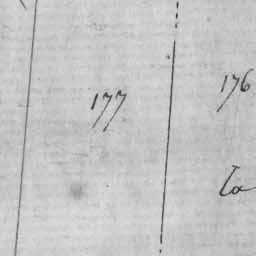 177
176
La